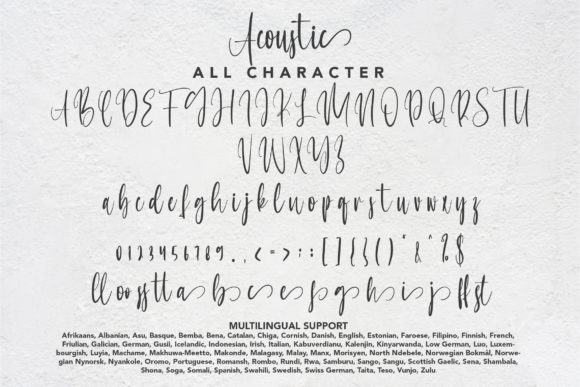 Acoustic
ALL CHARACTER
ABCDEFGHIJKLMNOPQRSTU
VWXYZ
abcdefghijklmnopqrstuvwxyz
0123456789., <=>:;[]{}()"&^%$
ll oo ss tt a b c e f g h i j ff st
MULTILINGUAL SUPPORT
Afrikaans, Albanian, Asu, Basque, Bemba, Bena, Catalan, Chiga, Cornish, Danish, English, Estonian, Faroese, Filipino, Finnish, French,
Friulian, Galician, German, Gusii, Icelandic, Indonesian, Irish, Italian, Kabuverdianu, Kalenjin, Kinyarwanda, Low German, Luo, Luxem-
bourgish, Luyia, Machame, Makhuwa-Meetto, Makonde, Malagasy, Malay, Manx, Morisyen, North Ndebele, Norwegian Bokmål, Norwe-
gian Nynorsk, Nyankole, Oromo, Portuguese, Romansh, Rombo, Rundi, Rwa, Samburu, Sango, Sangu, Scottish Gaelic, Sena, Shambala,
Shona, Soga, Somali, Spanish, Swahili, Swedish, Swiss German, Taita, Teso, Vunjo, Zulu